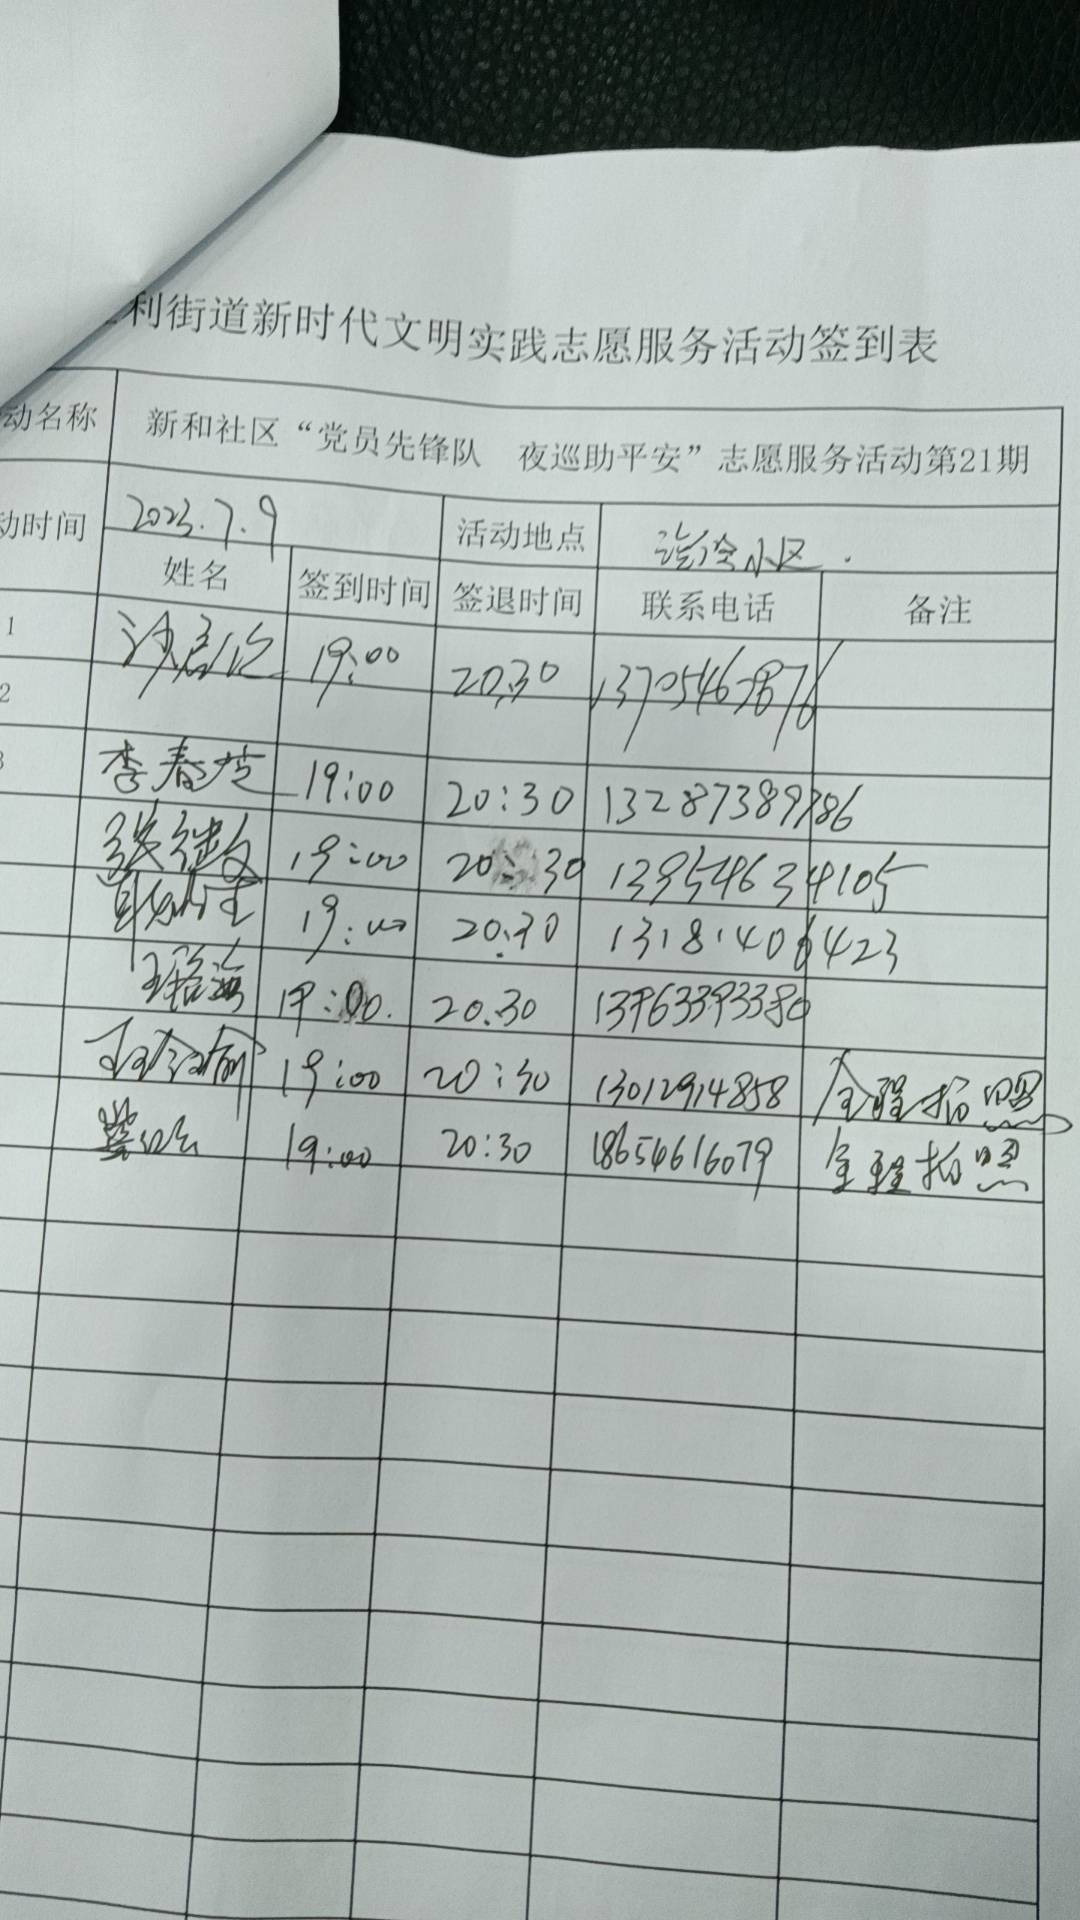 利街道新时代文明实践志愿服务活动签到表
动名称 新和社区“党员先锋队 夜巡助平安”志愿服务活动第21期
动时间 2023.7.9 活动地点 小区.
姓名 签到时间 签退时间 联系电话 备注
1 19:00 20.30 13705467876
2
3 李春芝 19:00 20:30 13287389786
19:00 20:30 13954634105
19:00 20.30 13181406423
19:00. 20.30 13963393380
19:00 20:30 13012914858 全程拍照
19:00 20:30 18654616079 全程拍照